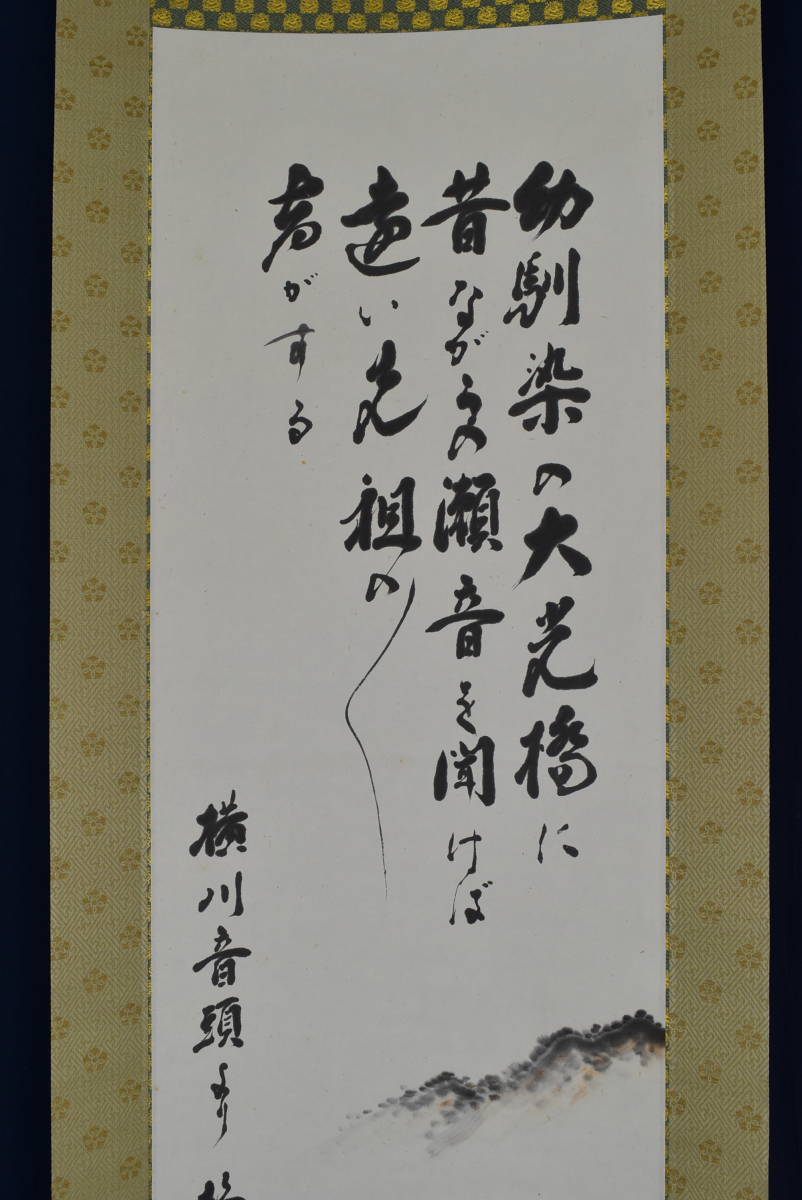 幼馴染の大光橋に
昔ながらの瀬音を聞けば
遠い先祖の
声がする
横川音頭より